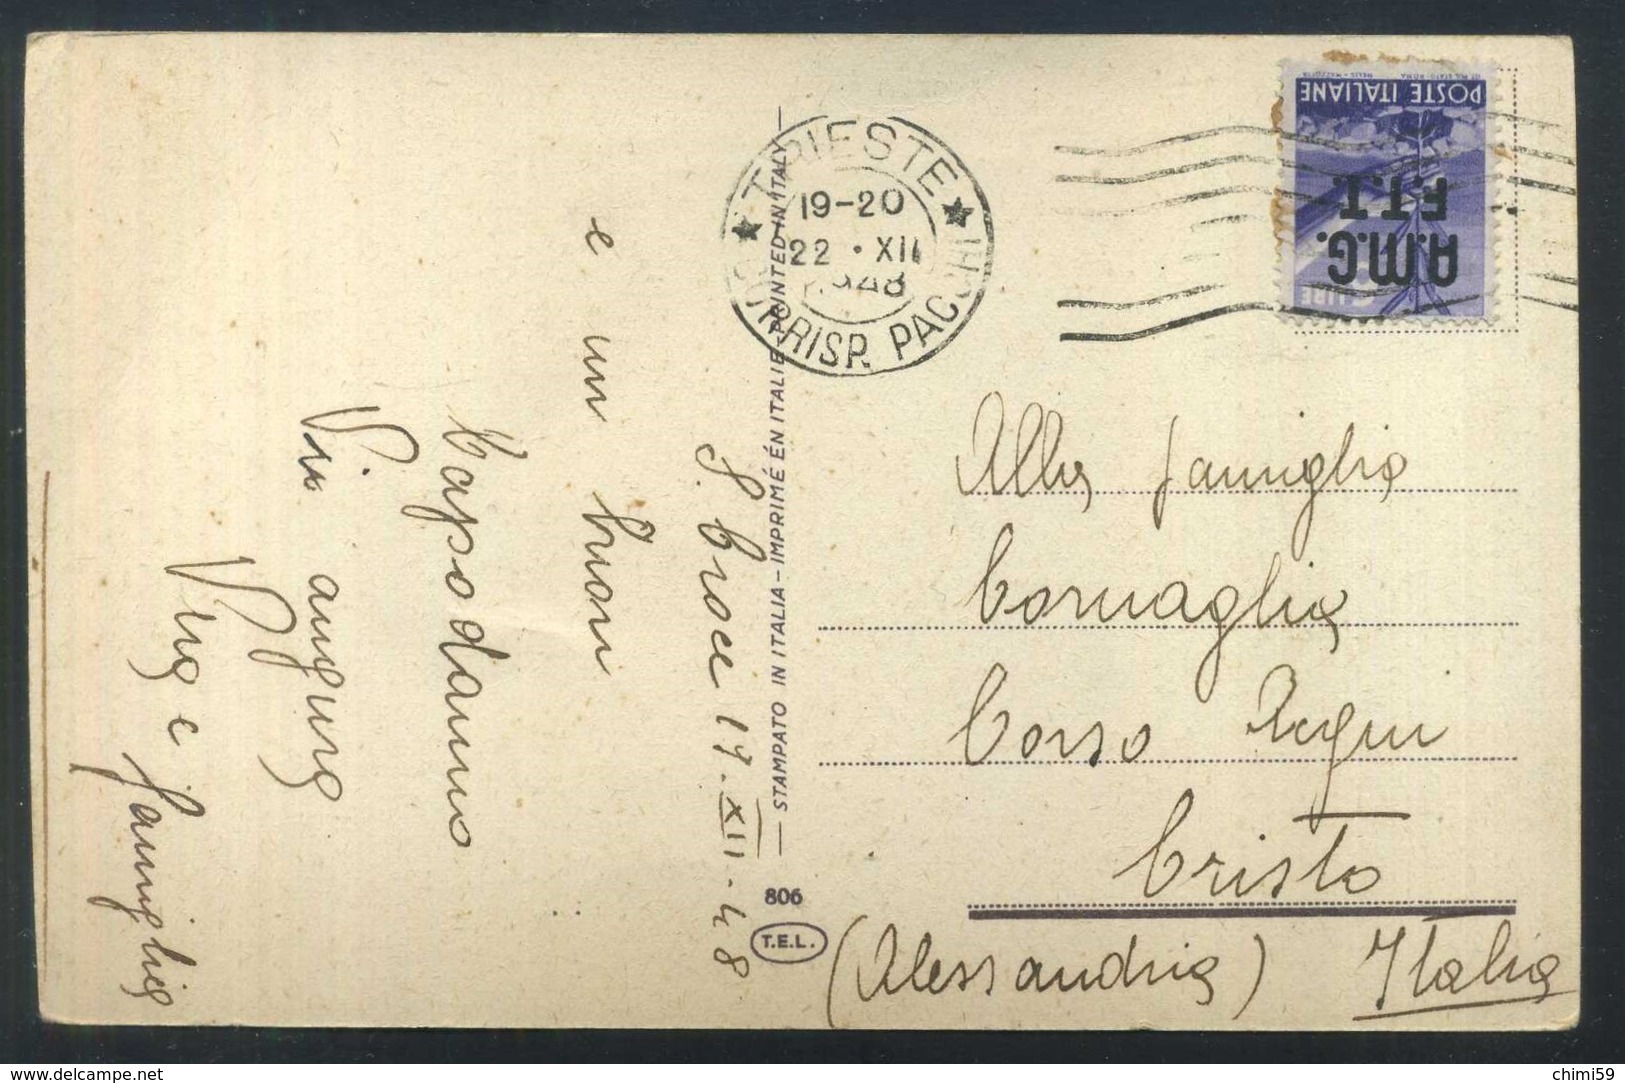 TRIESTE
19-20
22 . XII
1948
CORRISP. PACCHI
POSTE ITALIANE
A.M.G.
F.T.T.
LIRE
STAMPATO IN ITALIA – IMPRIMÉ EN ITALIE – PRINTED IN ITALY
806
T.E.L.
S. Croce 19.XII.48
e un buon
Capo d'anno
Vi augura
e famiglia
Alla famiglia
Cornaglia
Corso Acqui
Cristo
(Alessandria) Italia
www.delcampe.net
chimi59